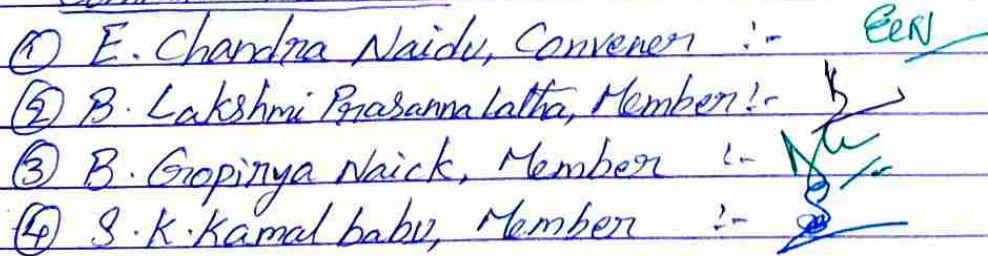 ① E. Chandra Naidu, Convener :- ECN
② B. Lakshmi Prasanna latha, Member :-
③ B. Gopirya Naick, Member :-
④ S. K. Kamal babu, Member :-